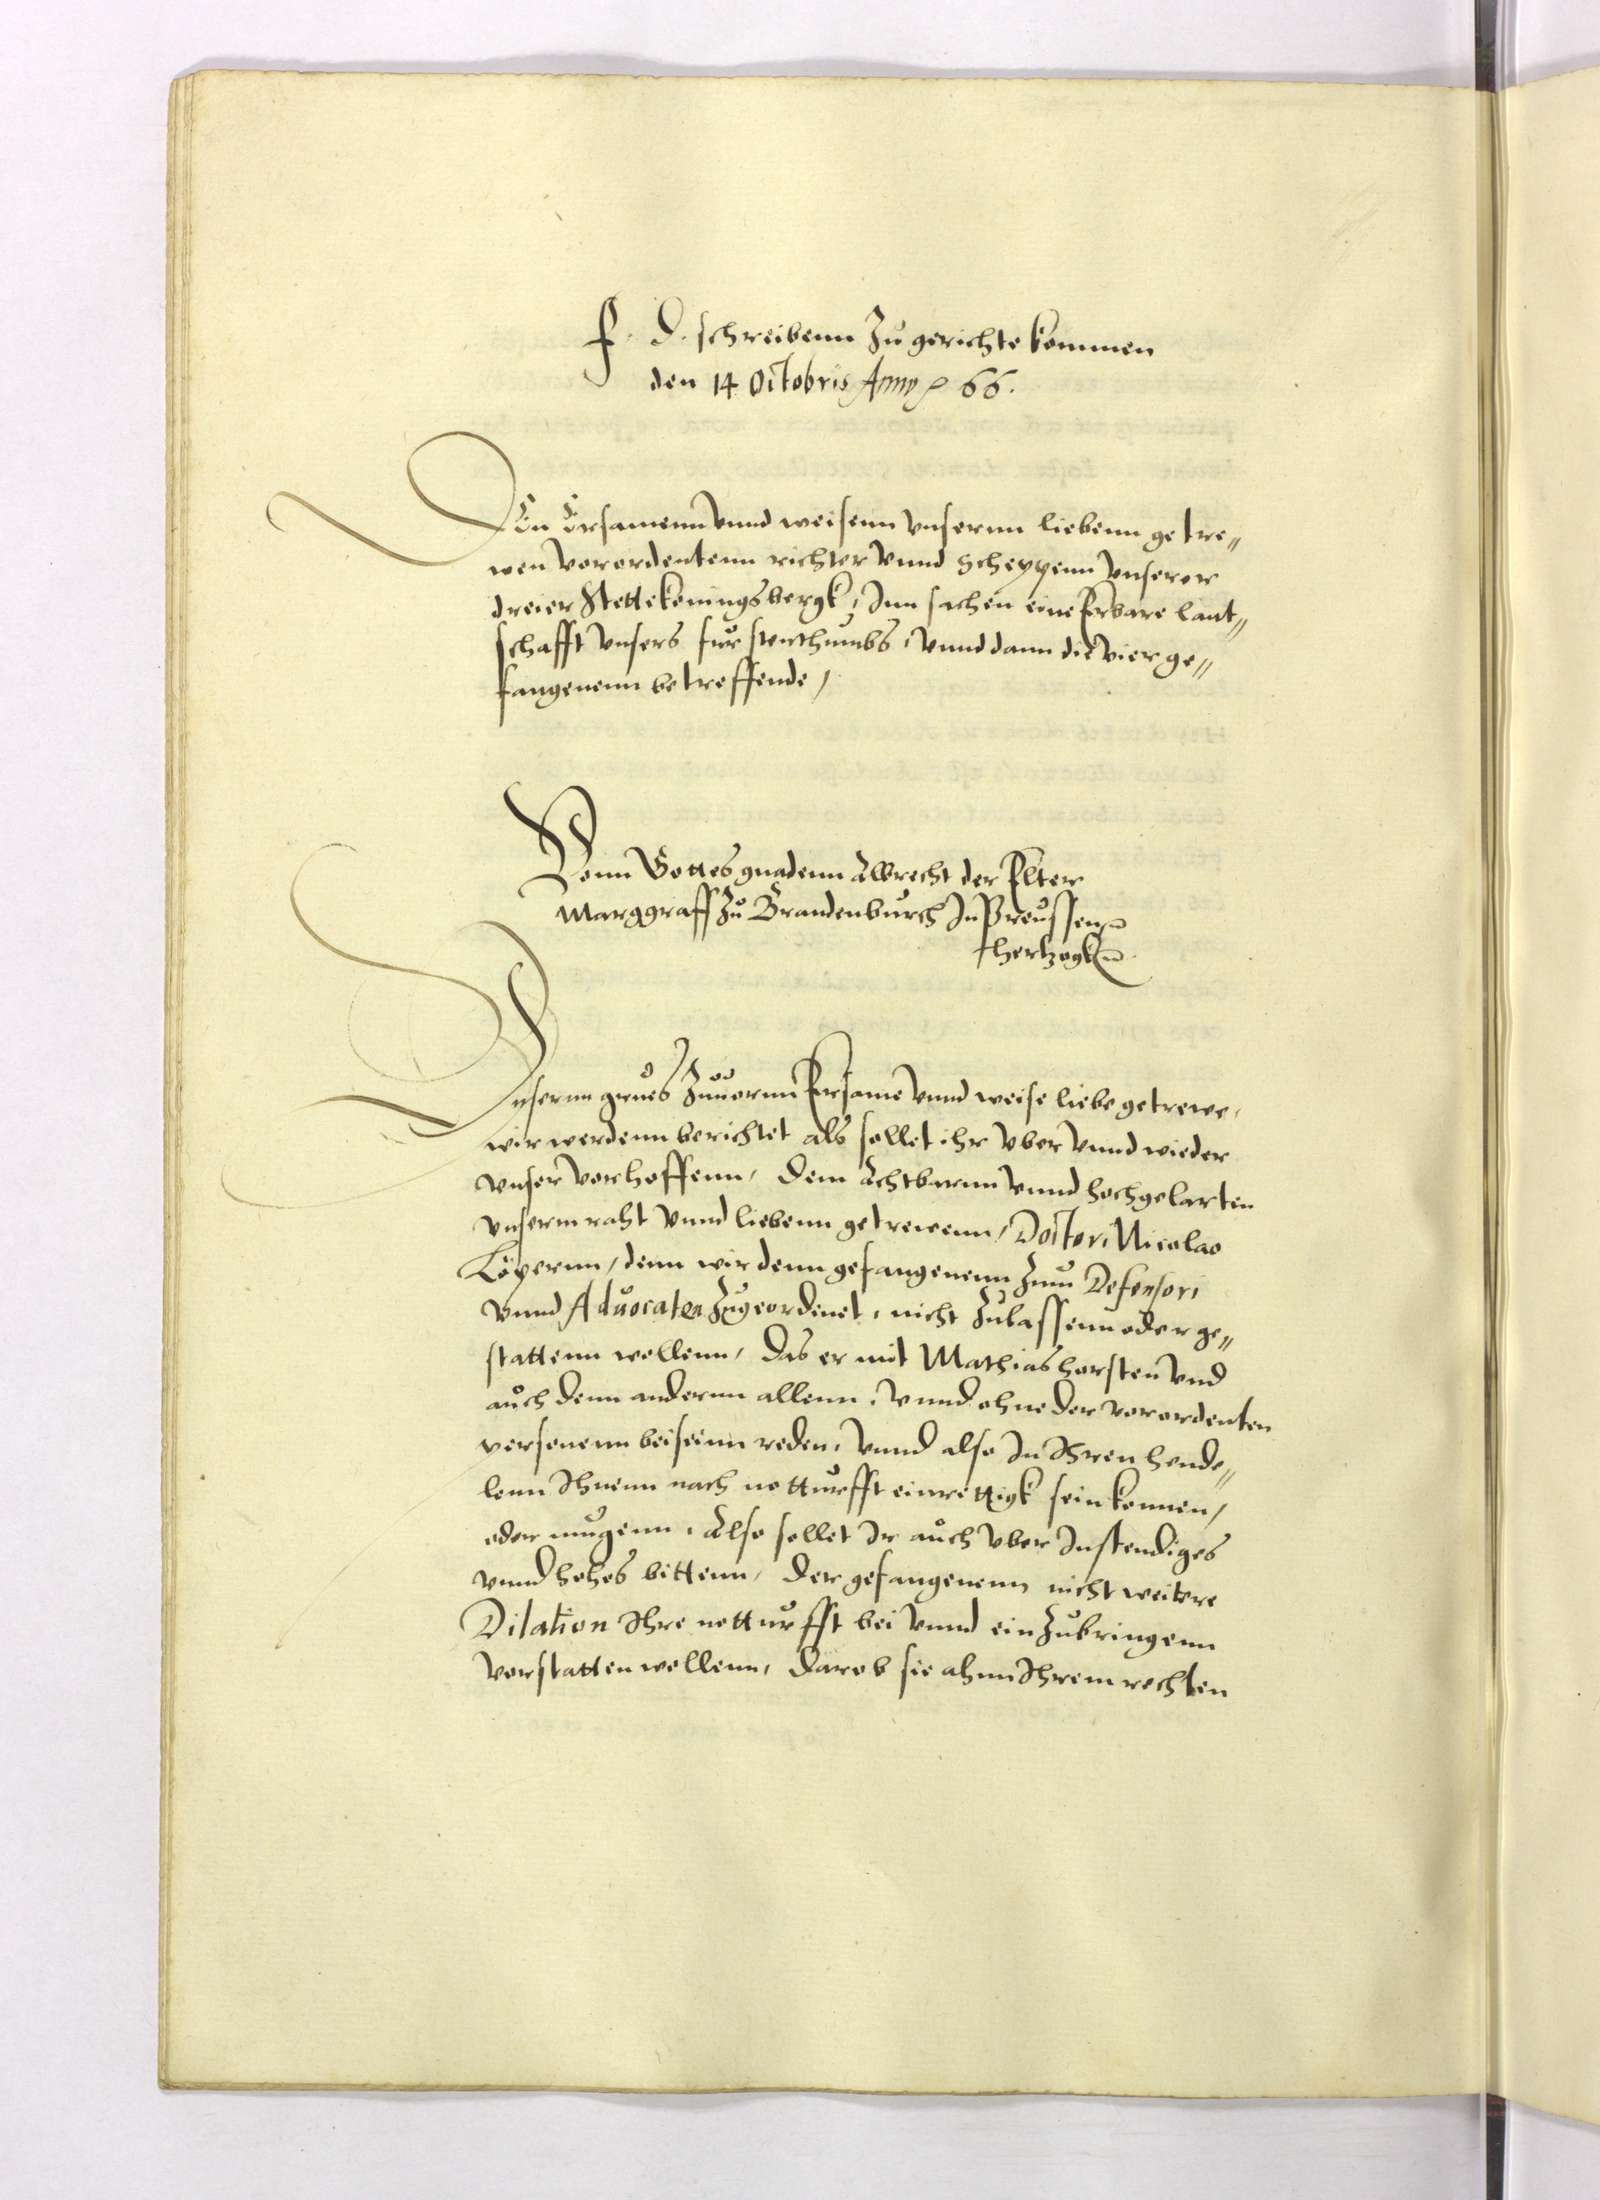 F. D. schreibenn zu gerichte kommen
den 14 Octobris Anno ꝛc 66.
Den Ersamenn vnnd weisenn vnsernn liebenn getre„
wen verordentenn richter vnnd Scheppenn vnserer
dreier Stette konningsbergk, Inn sachen eine Erbare lant„
schafft vnsers fürstenthumbs, vnnd dann die vier ge„
fangenenn betreffende,
Vonn Gottes gnadenn Albrecht der Elter
Marggraff zu Brandenburch In Preussenn
hertzogk ꝛc.
Vnsernn grues zuuornn Ersame vnnd weise liebe getrewe,
wir werdenn berichtet als sollet ihr vber vnnd wieder
vnser vorhoffenn, dem Achtbarnn vnnd hochgelarten
vnserm raht vnnd liebenn getrewenn, Doctori Nicolao
Köpernn, denn wir denn gefangenenn zum Defensori
vnnd Aduocaten zugeordenet, nicht zulassenn oder ge„
stattenn wollenn, das er mit Mathias horsten vnd
auch denn andernn allenn, vnnd ohne der verordenten
personenn beiseinn reden, vnnd also In Ihren hende„
lenn Ihnenn nach notturfft einrettigk sein konnen,
oder mugenn, Also sollet Ir auch vber Instendiges
vnnd hohes bittenn, der gefangenenn nicht weitere
Dilation Ihre notturfft bei vnnd ein zubringenn
vorstatten wollenn, darob sie ahnn Ihrem rechten